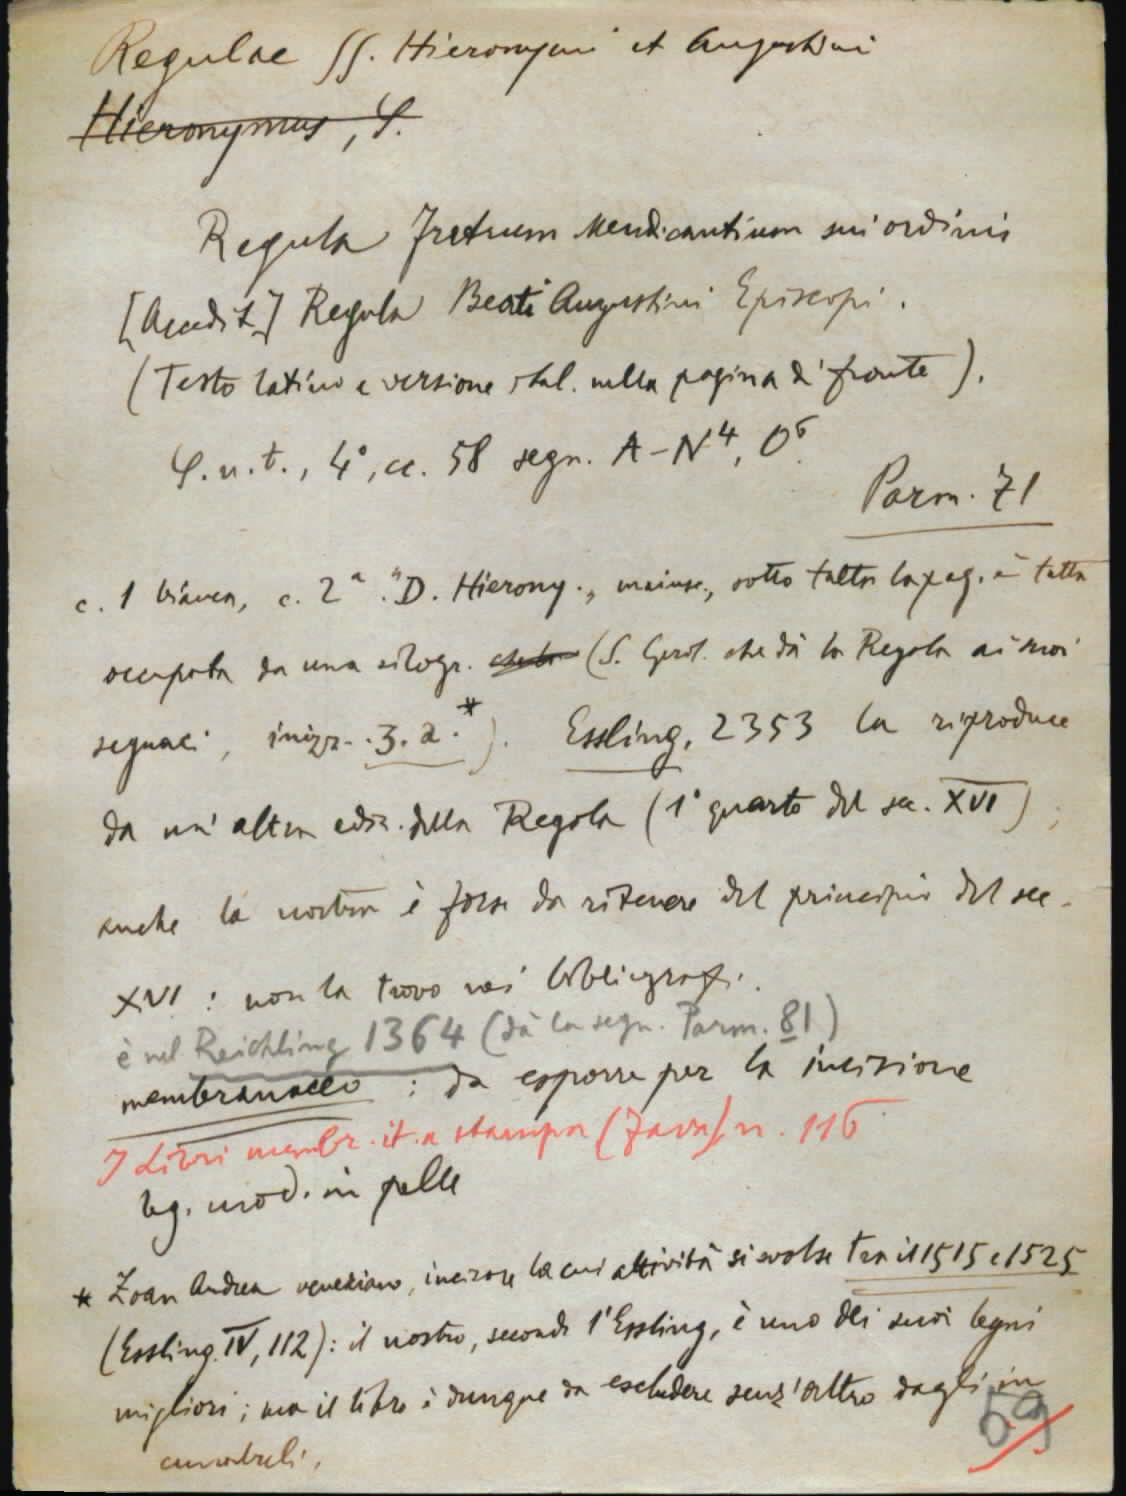 Regulae SS. Hieronymi et Augustini
Hieronymus, S.
Regula Fratrum Mendicantium sui ordinis
[Accedit] Regula Beati Augustini Episcopi.
(Testo latino e versione ital. nella pagina di fronte).
S.n.t., 4°, cc. 58 segn. A-N⁴, O⁶.
Parm. 71
c. 1 bianca, c. 2ª: "D. Hierony.", maiusc., sotto tutta la pag. è tutta
occupata da una silogr. (S. Gerol. che dà la Regola ai suoi
seguaci, inizz. .z.a.*). Essling, 2353 la riproduce
da un'altra ediz. della Regola (1° quarto del sec. XVI);
anche la nostra è forse da ritenere del principio del sec.
XVI: non la trovo nei bibliografi.
è nel Reichling 1364 (dà la segn. Parm. 81)
membranaceo: da esporre per la incisione
Libri membr. it. a stampa (Zava) n. 116
leg. mod. in pelle
* Zoan Andrea veneziano, incisore la cui attività si svolse tra il 1515 e 1525
(Essling IV, 112): il nostro, secondo l'Essling, è uno dei suoi legni
migliori; ma il libro è dunque da escludere senz'altro dagli in
cunabuli.
59